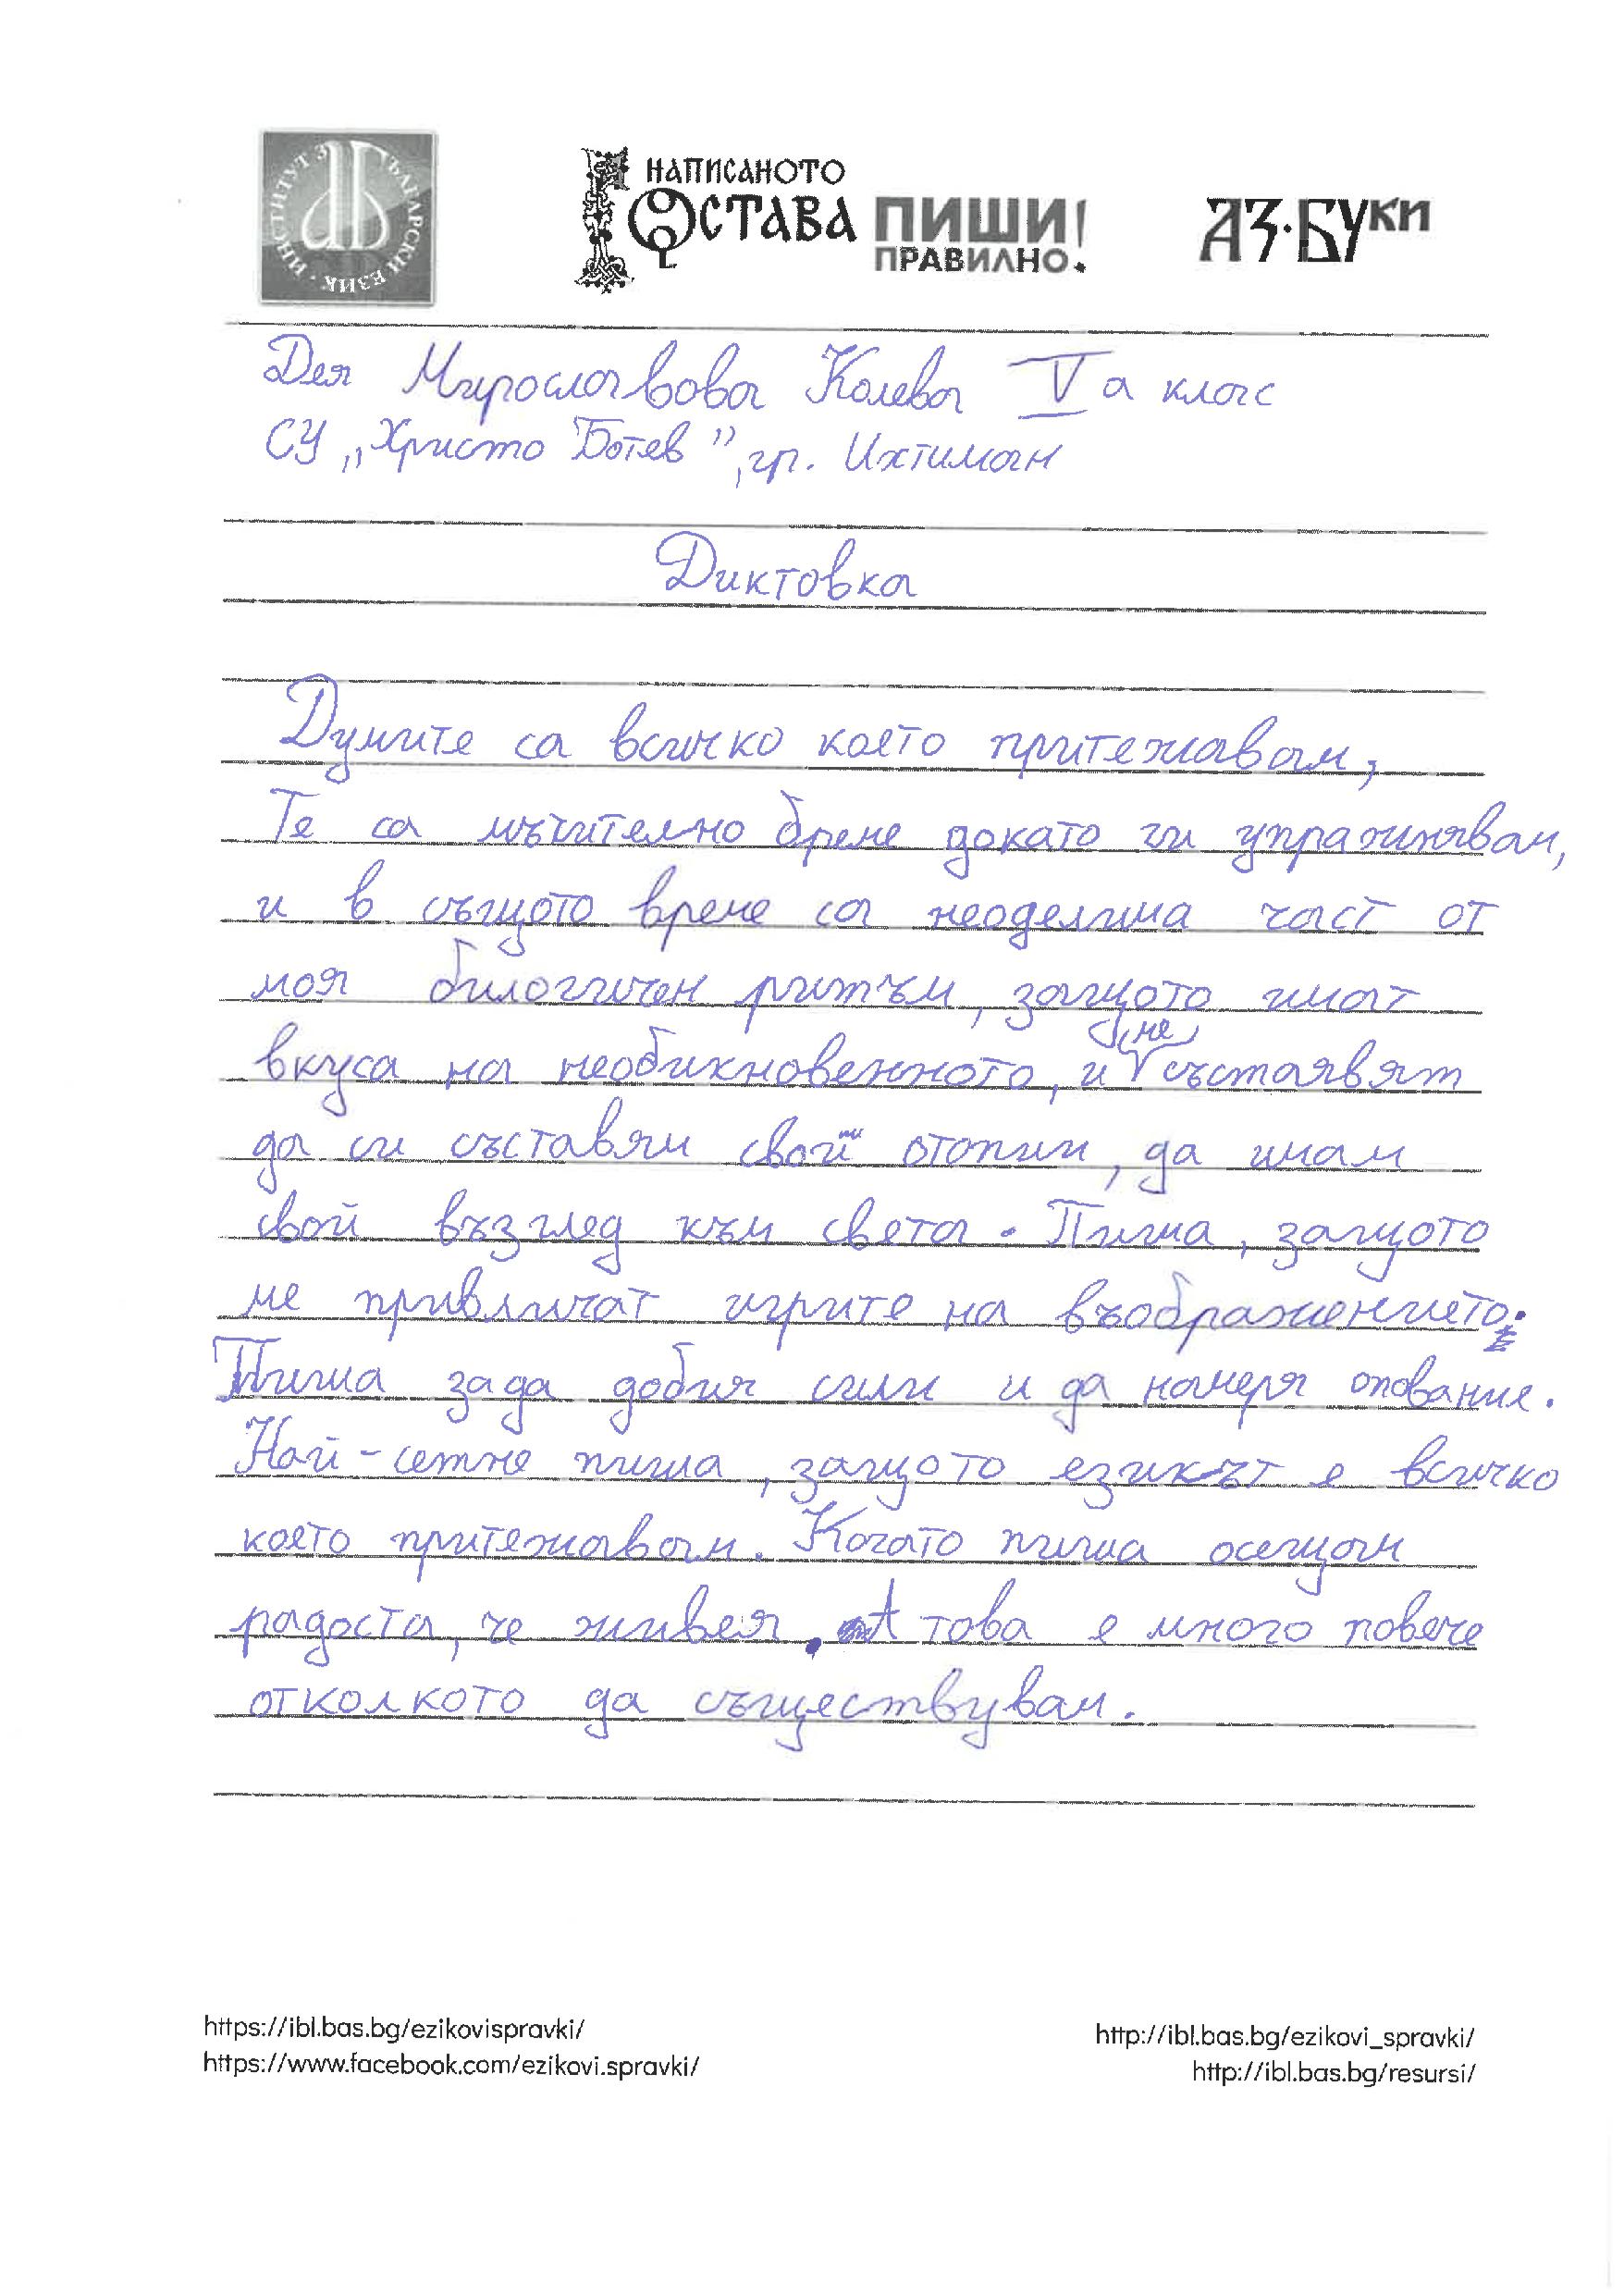 ИНСТИТУТ ЗА БЪЛГАРСКИ ЕЗИК
НАПИСАНОТО
ОСТАВА
ПИШИ!
ПРАВИЛНО.
АЗ·БУКИ
Дея Мирославова Колева V а клас
СУ „Христо Ботев", гр. Ихтиман
Диктовка
Думите са всичко което притежавам,
Те са мъчително бреме докато ги упражнявам,
и в същото време са неоделима част от
моя билогичен ритъм, защото имат
вкуса на необикновенното, и ме съставят
да си съставям свой отопии, да имам
свой възглед към света. Пиша, защото
ме привличат игрите на въображението.
Пиша за да добия сили и да намеря опование.
Най-сетне пиша, защото езикът е всичко
което притежавам. Когато пиша осещам
радоста, че живея. А това е много повече
отколкото да съществувам.
https://ibl.bas.bg/ezikovispravki/
https://www.facebook.com/ezikovi.spravki/
http://ibl.bas.bg/ezikovi_spravki/
http://ibl.bas.bg/resursi/